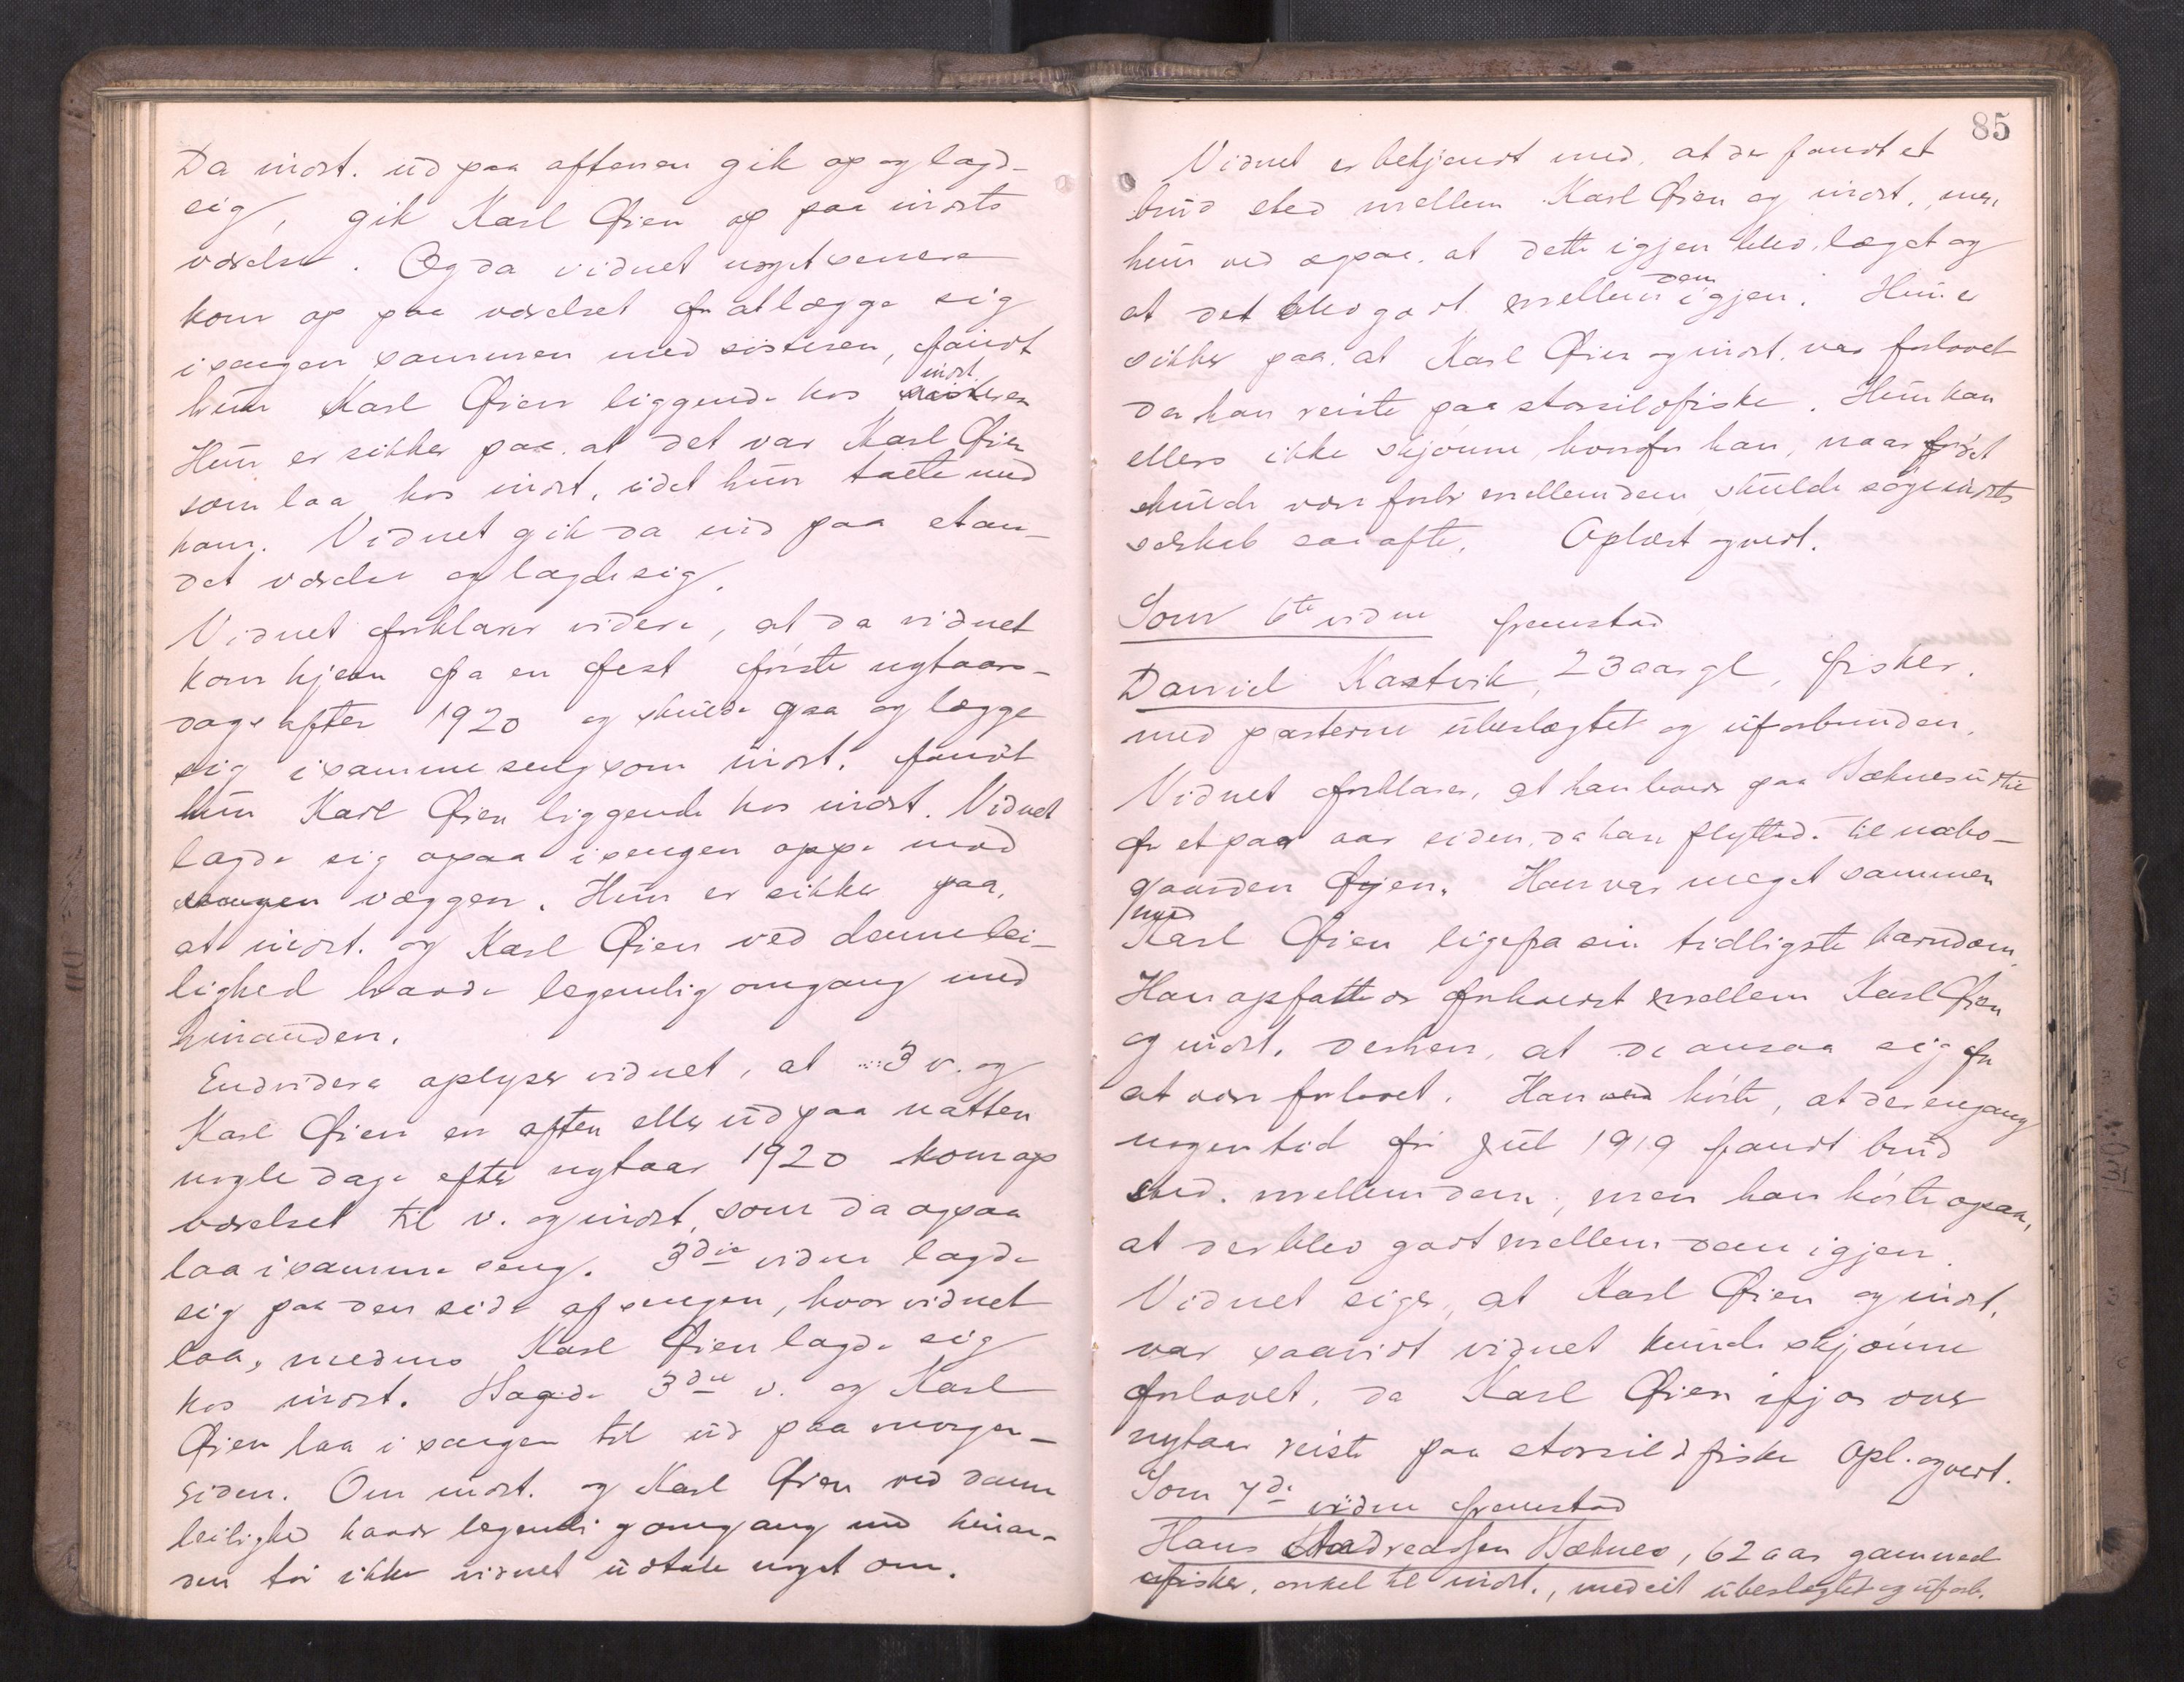 Da indst. ud paa aftenen gik op og lagd-
sig, gik Karl Øien op paa indsts
værelse. Og da vidnet noget senere
kom op paa værelset for at lægge sig
i sengen sammen med søsteren, fandt
indst.
hun Karl Øien liggende hos søsteren
Hun er sikker paa, at det var Karl Øien
som laa hos indst, idet hun talte med
ham. Vidnet gik da ind paa et an-
det værelse og lagde sig.
Vidnet forklarer videre, at da vidnet
kom hjem fra en fest første nytaars-
dags aften 1920 og skulde gaa og lægge
sig i samme seng som indst. fandt
hun Karl Øien liggende hos indst. Vidnet
lagde sig ogsaa i sengen oppe mod
sengen væggen. Hun er sikker paa,
at indst. og Karl Øien ved denne lei-
lighed havde legemlig omgang med
hinanden.
Endvidere oplyser vidnet, at 3 v. og
Karl Øien en aften eller ud paa natten
nogle dage efter nytaar 1920 kom op
værelset til v. og indst, som da ogsaa
laa i samme seng. 3die vidne lagde
sig paa den side af sengen, hvor vidnet
laa, medens Karl Øien lagde sig
hos indst. 3die v. og Karl
Øien laa i sengen til ud paa morgen-
siden. Om indst. og Karl Øien ved denne
leilighed havde legemlig omgang med hinan-
den tør ikke vidnet udtale noget om.
85
Vidnet er bekjendt med, at der fandt et
brud sted mellem Karl Øien og indst., men
hun ved ogsaa, at dette igjen blev læget og
dem
at det blev godt mellem igjen. Hun er
sikker paa, at Karl Øien og indst. var forlovet
da han reiste paa storsildfiske. Hun kan
ellers ikke skjønne, hvorfor han, naar det
skulde være forbi mellem dem, skulde søge indsts
selskab saa ofte. Oplæst og vedt.
Som 6te vidne fremstod
Daniel Kastvik, 23 aar gl, fisker.
med parterne ubeslægtet og uforbunden.
Vidnet forklarer, at han boede paa
for et par aar siden, da han flyttede til nabo-
gaarden Øyen. Han var meget sammen
med
Karl Øien lige fra sin tidligste barndom.
Han opfattede forholdet mellem Karl Øien
og indst. derhen, at de ansaa sig for
at være forlovet. Han ved hørte, at der engang
nogen tid før Jul 1919 fandt brud
sted mellem dem, men han hørte ogsaa,
at der blev godt mellem dem igjen.
Vidnet siger, at Karl Øien og indst.
var saavidt vidnet kunde skjønne
forlovet, da Karl Øien ifjor over
nytaar reiste paa storsildfiske Opl. og vedt.
Som 7de vidne fremstod
Hans Andreassen Sætnes, 62 aar gammel
fisker, onkel til indst., med ubeslægtet og uforb.